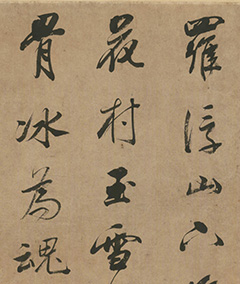 羅浮山下
花村玉雪
骨冰為魂